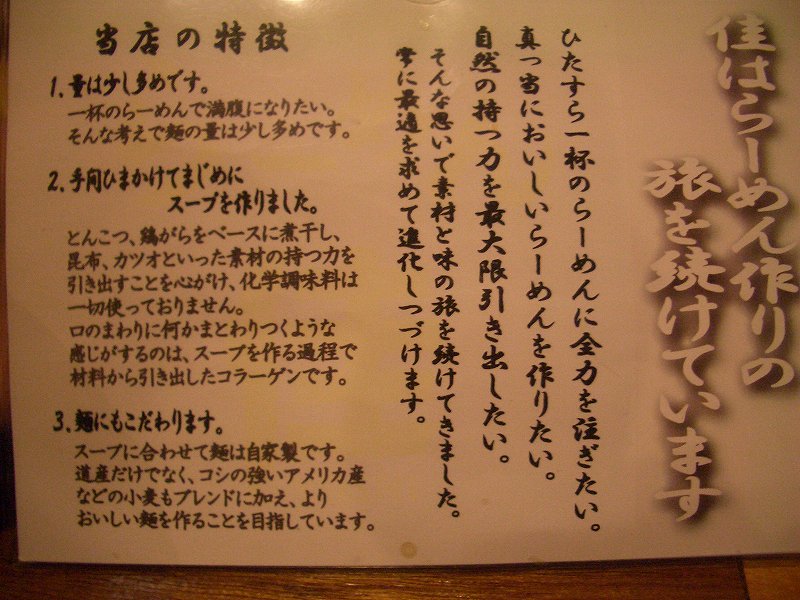 佳はらーめん作りの
旅を続けています
ひたすら一杯のらーめんに全力を注ぎたい。
真っ当においしいらーめんを作りたい。
自然の持つ力を最大限引き出したい。
そんな思いで素材と味の旅を続けてきました。
常に最適を求めて進化しつづけます。
当店の特徴
1、量は少し多めです。
一杯のらーめんで満腹になりたい。
そんな考えで麺の量は少し多めです。
2、手間ひまかけてまじめに
スープを作りました。
とんこつ、鶏がらをベースに煮干し、
昆布、カツオといった素材の持つ力を
引き出すことを心がけ、化学調味料は
一切使っておりません。
口のまわりに何かまとわりつくような
感じがするのは、スープを作る過程で
材料から引き出したコラーゲンです。
3、麺にもこだわります。
スープに合わせて麺は自家製です。
道産だけでなく、コシの強いアメリカ産
などの小麦もブレンドに加え、より
おいしい麺を作ることを目指しています。